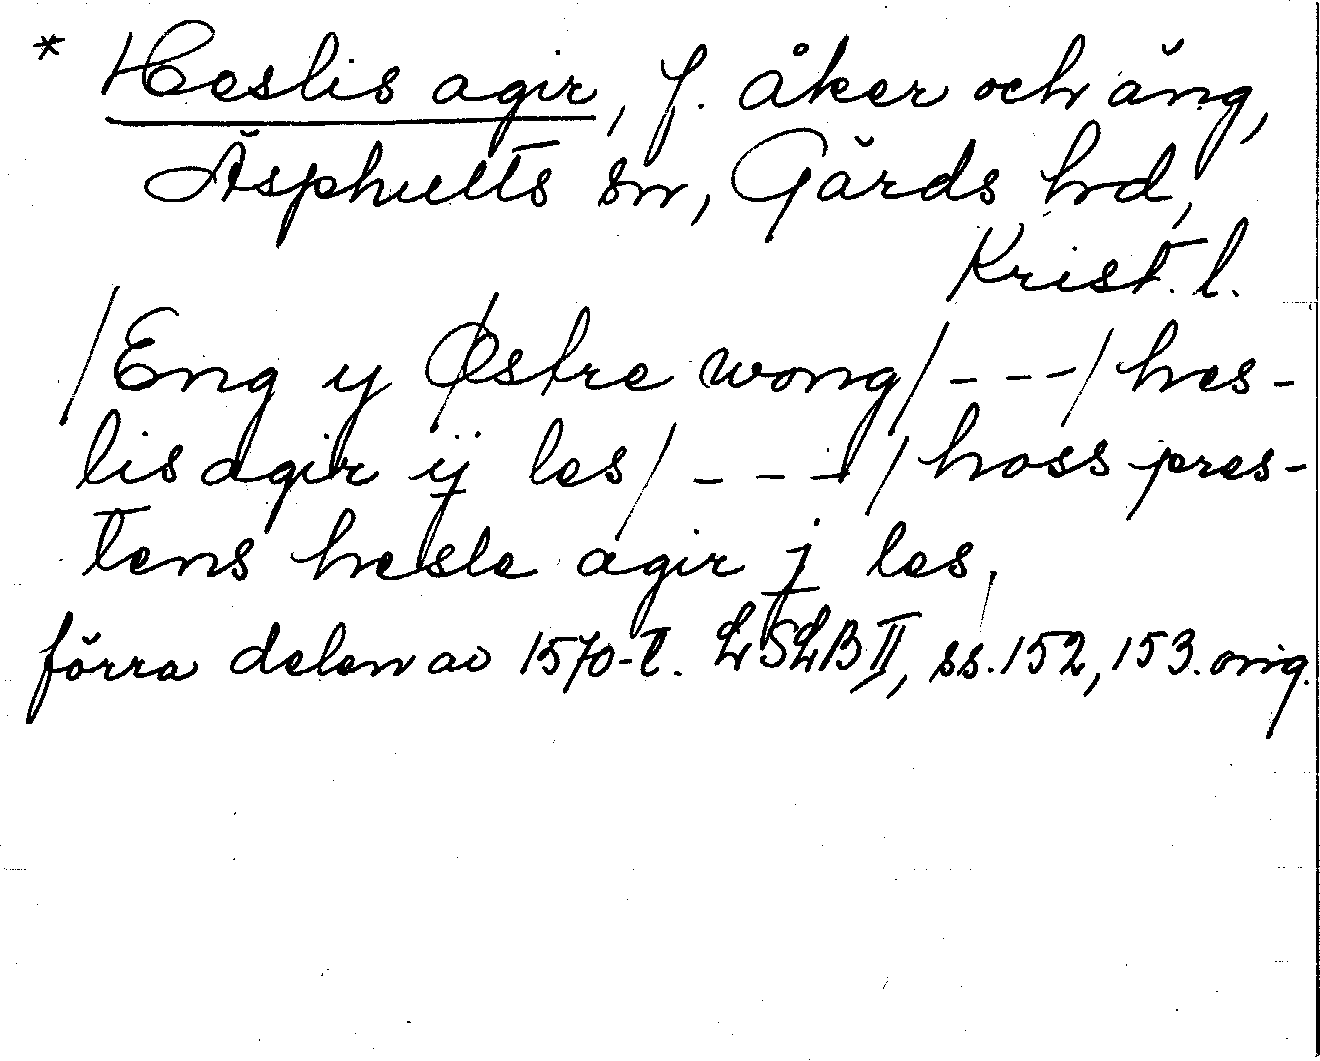 * Heslis agir, f. åker och äng,
Äsphults sn, Gärds hd,
Krist. l.
/Eng y Østre wong/ - - - / hes-
lis agir ij les / - - - / hoss pres-
tens hesle agir j les,
förra delen av 1570-t. LSLB II, ss. 152, 153. orig.